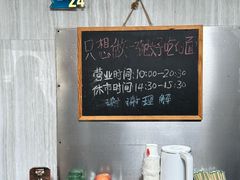 24
只想做一碗好吃的面
营业时间:10:00-20:30
休市时间:14:30-15:30
谢谢理解